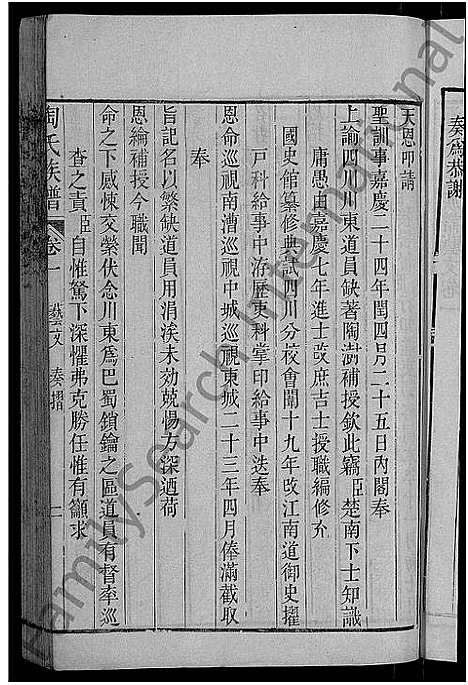 奏為恭謝
天恩叩請
聖訓事嘉慶二十四年閏四月二十五日內閣奉
上諭四川川東道員缺著陶澍補授欽此竊臣楚南下士知識
庸愚由嘉慶七年進士改庶吉士授職編修充
國史館纂修典試四川分校會闈十九年改江南道御史擢
戶科給事中洊歷吏科掌印給事中迭奉
恩命巡視南漕巡視中城巡視東城二十三年四月俸滿截取
奉
旨記名以繁缺道員用涓涘未効兢惕方深迺荷
恩綸補授今職聞
命之下感悚交縈伏念川東為巴蜀鎖鑰之區道員有督率巡
查之責臣自惟駑下深懼弗克勝任惟有籲求
陶氏族譜 卷一 藝文 奏摺 二
FamilySearch International